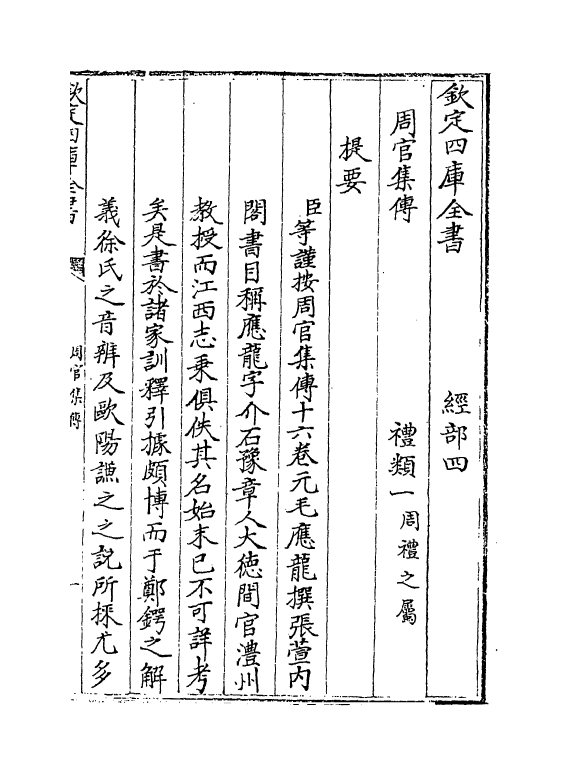 欽定四庫全書　經部四
周官集傳　禮類一周禮之屬
提要
臣等謹按周官集傳十六卷元毛應龍撰張萱内
閣書目稱應龍字介石豫章人大德間官澧州
教授而江西志乗俱佚其名始末已不可詳考
矣是書於諸家訓釋引據頗博而于鄭鍔之解
義徐氏之音辨及歐陽謙之之説所採尤多
欽定四庫全書
周官集傳
一